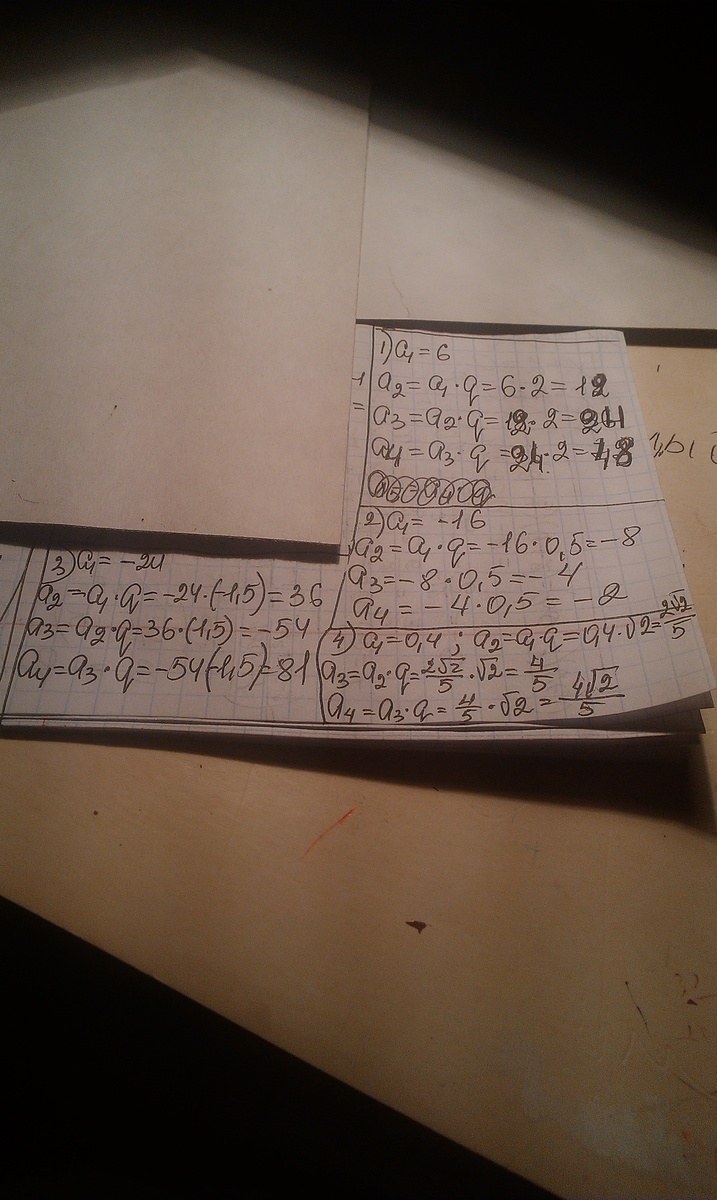 1) a₁ = 6
a₂ = a₁ · q = 6 · 2 = 12
a₃ = a₂ · q = 12 · 2 = 24
a₄ = a₃ · q = 24 · 2 = 48
2) a₁ = -16
a₂ = a₁ · q = -16 · 0,5 = -8
a₃ = -8 · 0,5 = -4
a₄ = -4 · 0,5 = -2
3) a₁ = -24
a₂ = a₁ · q = -24 · (-1,5) = 36
a₃ = a₂ · q = 36 · (-1,5) = -54
a₄ = a₃ · q = -54(-1,5) = 81
4) a₁ = 0,4 ; a₂ = a₁ · q = 0,4 · √2 = 2√2/5
a₃ = a₂ · q = 2√2/5 · √2 = 4/5
a₄ = a₃ · q = 4/5 · √2 = 4√2/5